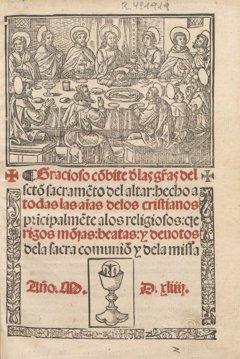 R. 41919
Gracioso cõbite d̃las gr̃as del
sctõ sacramẽto del altar: hecho a
todas las aĩas delos cristianos
principalmẽte alos religiosos: cle
rigos mõjas: beatas: y deuotos
dela sacra comuniõ y dela missa
Año. M. D. xliiij.